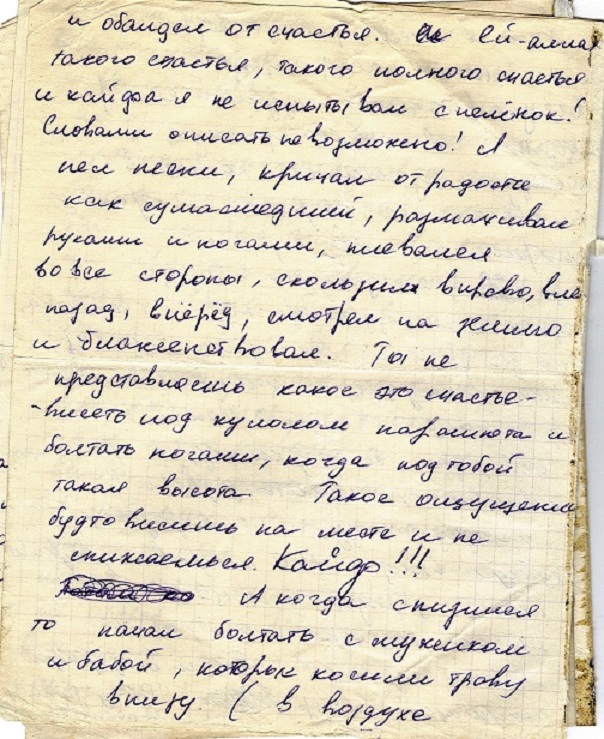 и обалдел от счастья. Ей-аллах
такого счастья, такого полного счастья
и кайфа я не испытывал с пелёнок!
Словами описать невозможно! Я
пел песни, кричал от радости
как сумасшедший, размахивал
руками и ногами, плевался
во все стороны, скользил вправо, вле
назад, вперёд, смотрел на землю
и блаженствовал. Ты не
представляешь какое это счастье -
- висеть под куполом парашюта и
болтать ногами, когда под тобой
такая высота. Такое ощущение
будто висишь на месте и не
снижаешься. Кайф!!!
А когда снизился
то начал болтать с мужиком
и бабой, которые косили траву
внизу. (в воздухе